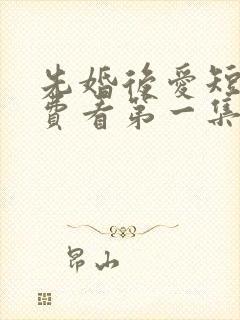 先婚後愛短
費看第一集
昂山